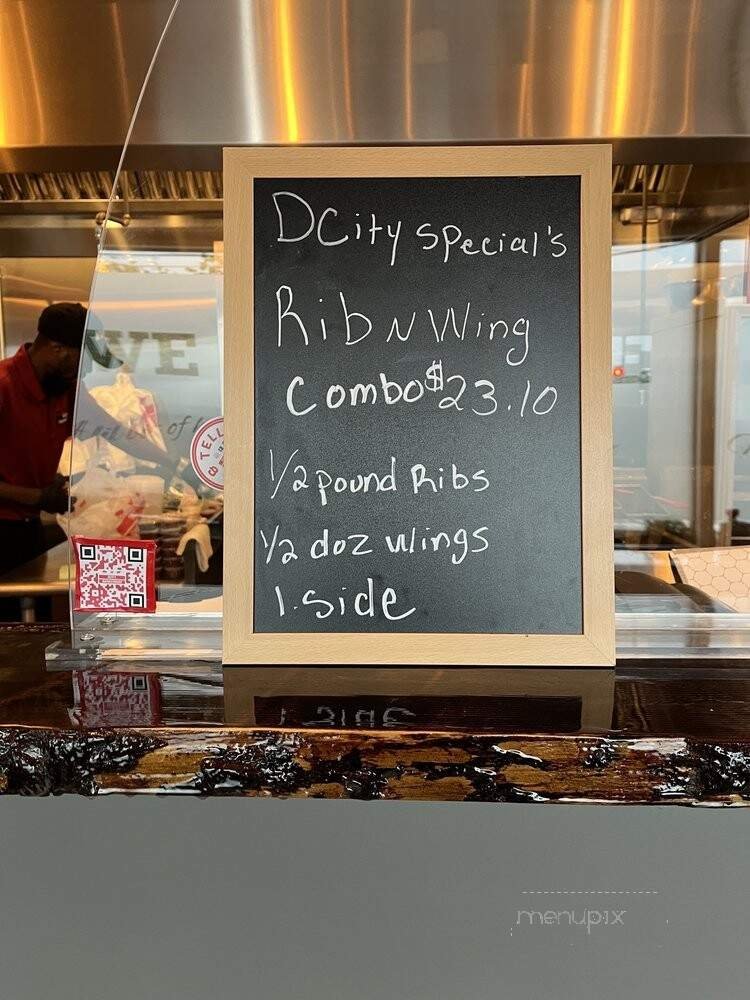 DCity Special's
Rib N Wing
Combo $23.10
1/2 pound Ribs
1/2 doz wings
1. side
WE
TELL
menupix